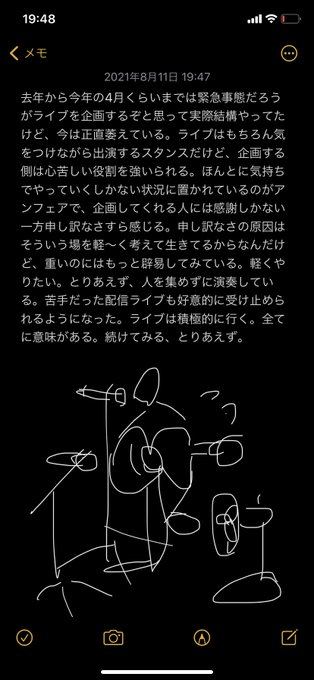 19:48
メモ
2021年8月11日 19:47
去年から今年の4月くらいまでは緊急事態だろう
がライブを企画するぞと思って実際結構やってた
けど、今は正直萎えている。ライブはもちろん気
をつけながら出演するスタンスだけど、企画する
側は心苦しい役割を強いられる。ほんとに気持ち
でやっていくしかない状況に置かれているのがア
ンフェアで、企画してくれる人には感謝しかない
一方申し訳なさすら感じる。申し訳なさの原因は
そういう場を軽〜く考えて生きてるからなんだけ
ど、重いのにはもっと辟易してみている。軽くや
りたい。とりあえず、人を集めずに演奏してい
る。苦手だった配信ライブも好意的に受け止めら
れるようになった。ライブは積極的に行く。全て
に意味がある。続けてみる、とりあえず。